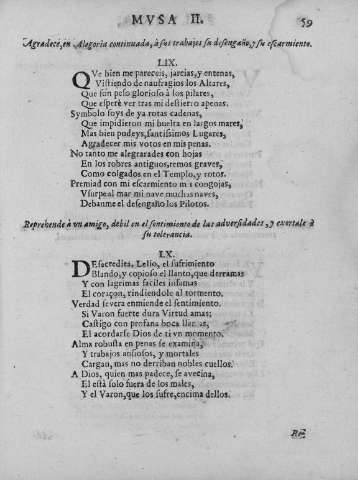 MVSA II. 59
Agradece, en Alegoria continuada, à sus trabajos su desengaño, y su escarmiento.
LIX.
QVe bien me pareceis, jarcias, y entenas,
Vistiendo de naufragios los Altares,
Que son peso glorioso à los pilares,
Que esperè ver tras mi destierro apenas.
Symbolo soys de ya rotas cadenas,
Que impidieron mi buelta en largos mares;
Mas bien podeys, santissimos Lugares,
Agradecer mis votos en mis penas.
No tanto me alegrarades con hojas
En los robres antiguos, remos graves,
Como colgados en el Templo, y rotos.
Premiad con mi escarmiento mis congojas,
Vsurpe al mar mi nave muchas naves,
Debanme el desengaño los Pilotos.
Reprehende à vn amigo, debil en el sentimiento de las adversidades, y exortale à
su tolerancia.
LX.
DEsacredita, Lelio, el sufrimiento
Blando, y copioso el llanto, que derramas
Y con lagrimas faciles infamas
El coraçon, rindiendole al tormento.
Verdad severa enmiende el sentimiento.
Si Varon fuerte dura Virtud amas;
Castigo con profana boca llamas,
El acordarse Dios de ti vn momento.
Alma robusta en penas se examina,
Y trabajos ansiosos, y mortales
Cargan, mas no derriban nobles cuellos.
A Dios, quien mas padece, se avecina,
El està solo fuera de los males,
Y el Varon, que los sufre, encima dellos.